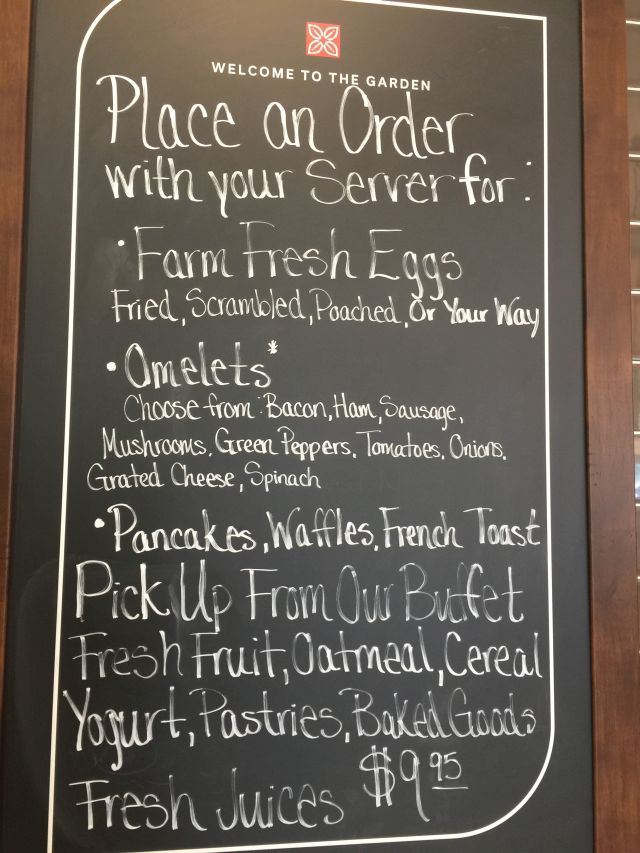 WELCOME TO THE GARDEN
Place an Order
with your Server for:
• Farm Fresh Eggs
Fried, Scrambled, Poached, Or Your Way
• Omelets*
Choose from: Bacon, Ham, Sausage,
Mushrooms, Green Peppers, Tomatoes, Onions,
Grated Cheese, Spinach
• Pancakes, Waffles, French Toast
Pick Up From Our Buffet
Fresh Fruit, Oatmeal, Cereal
Yogurt, Pastries, Baked Goods
Fresh Juices $9.95